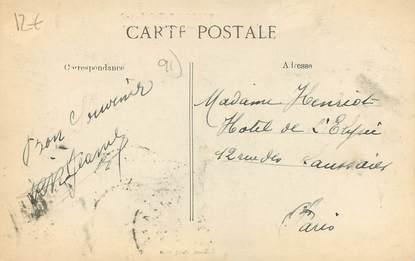 12€
CARTE POSTALE
Correspondance
91)
Adresse
Bon Souvenir
Madame Henriot
Hotel de l'Elysée
12 rue des Saussaies
Paris